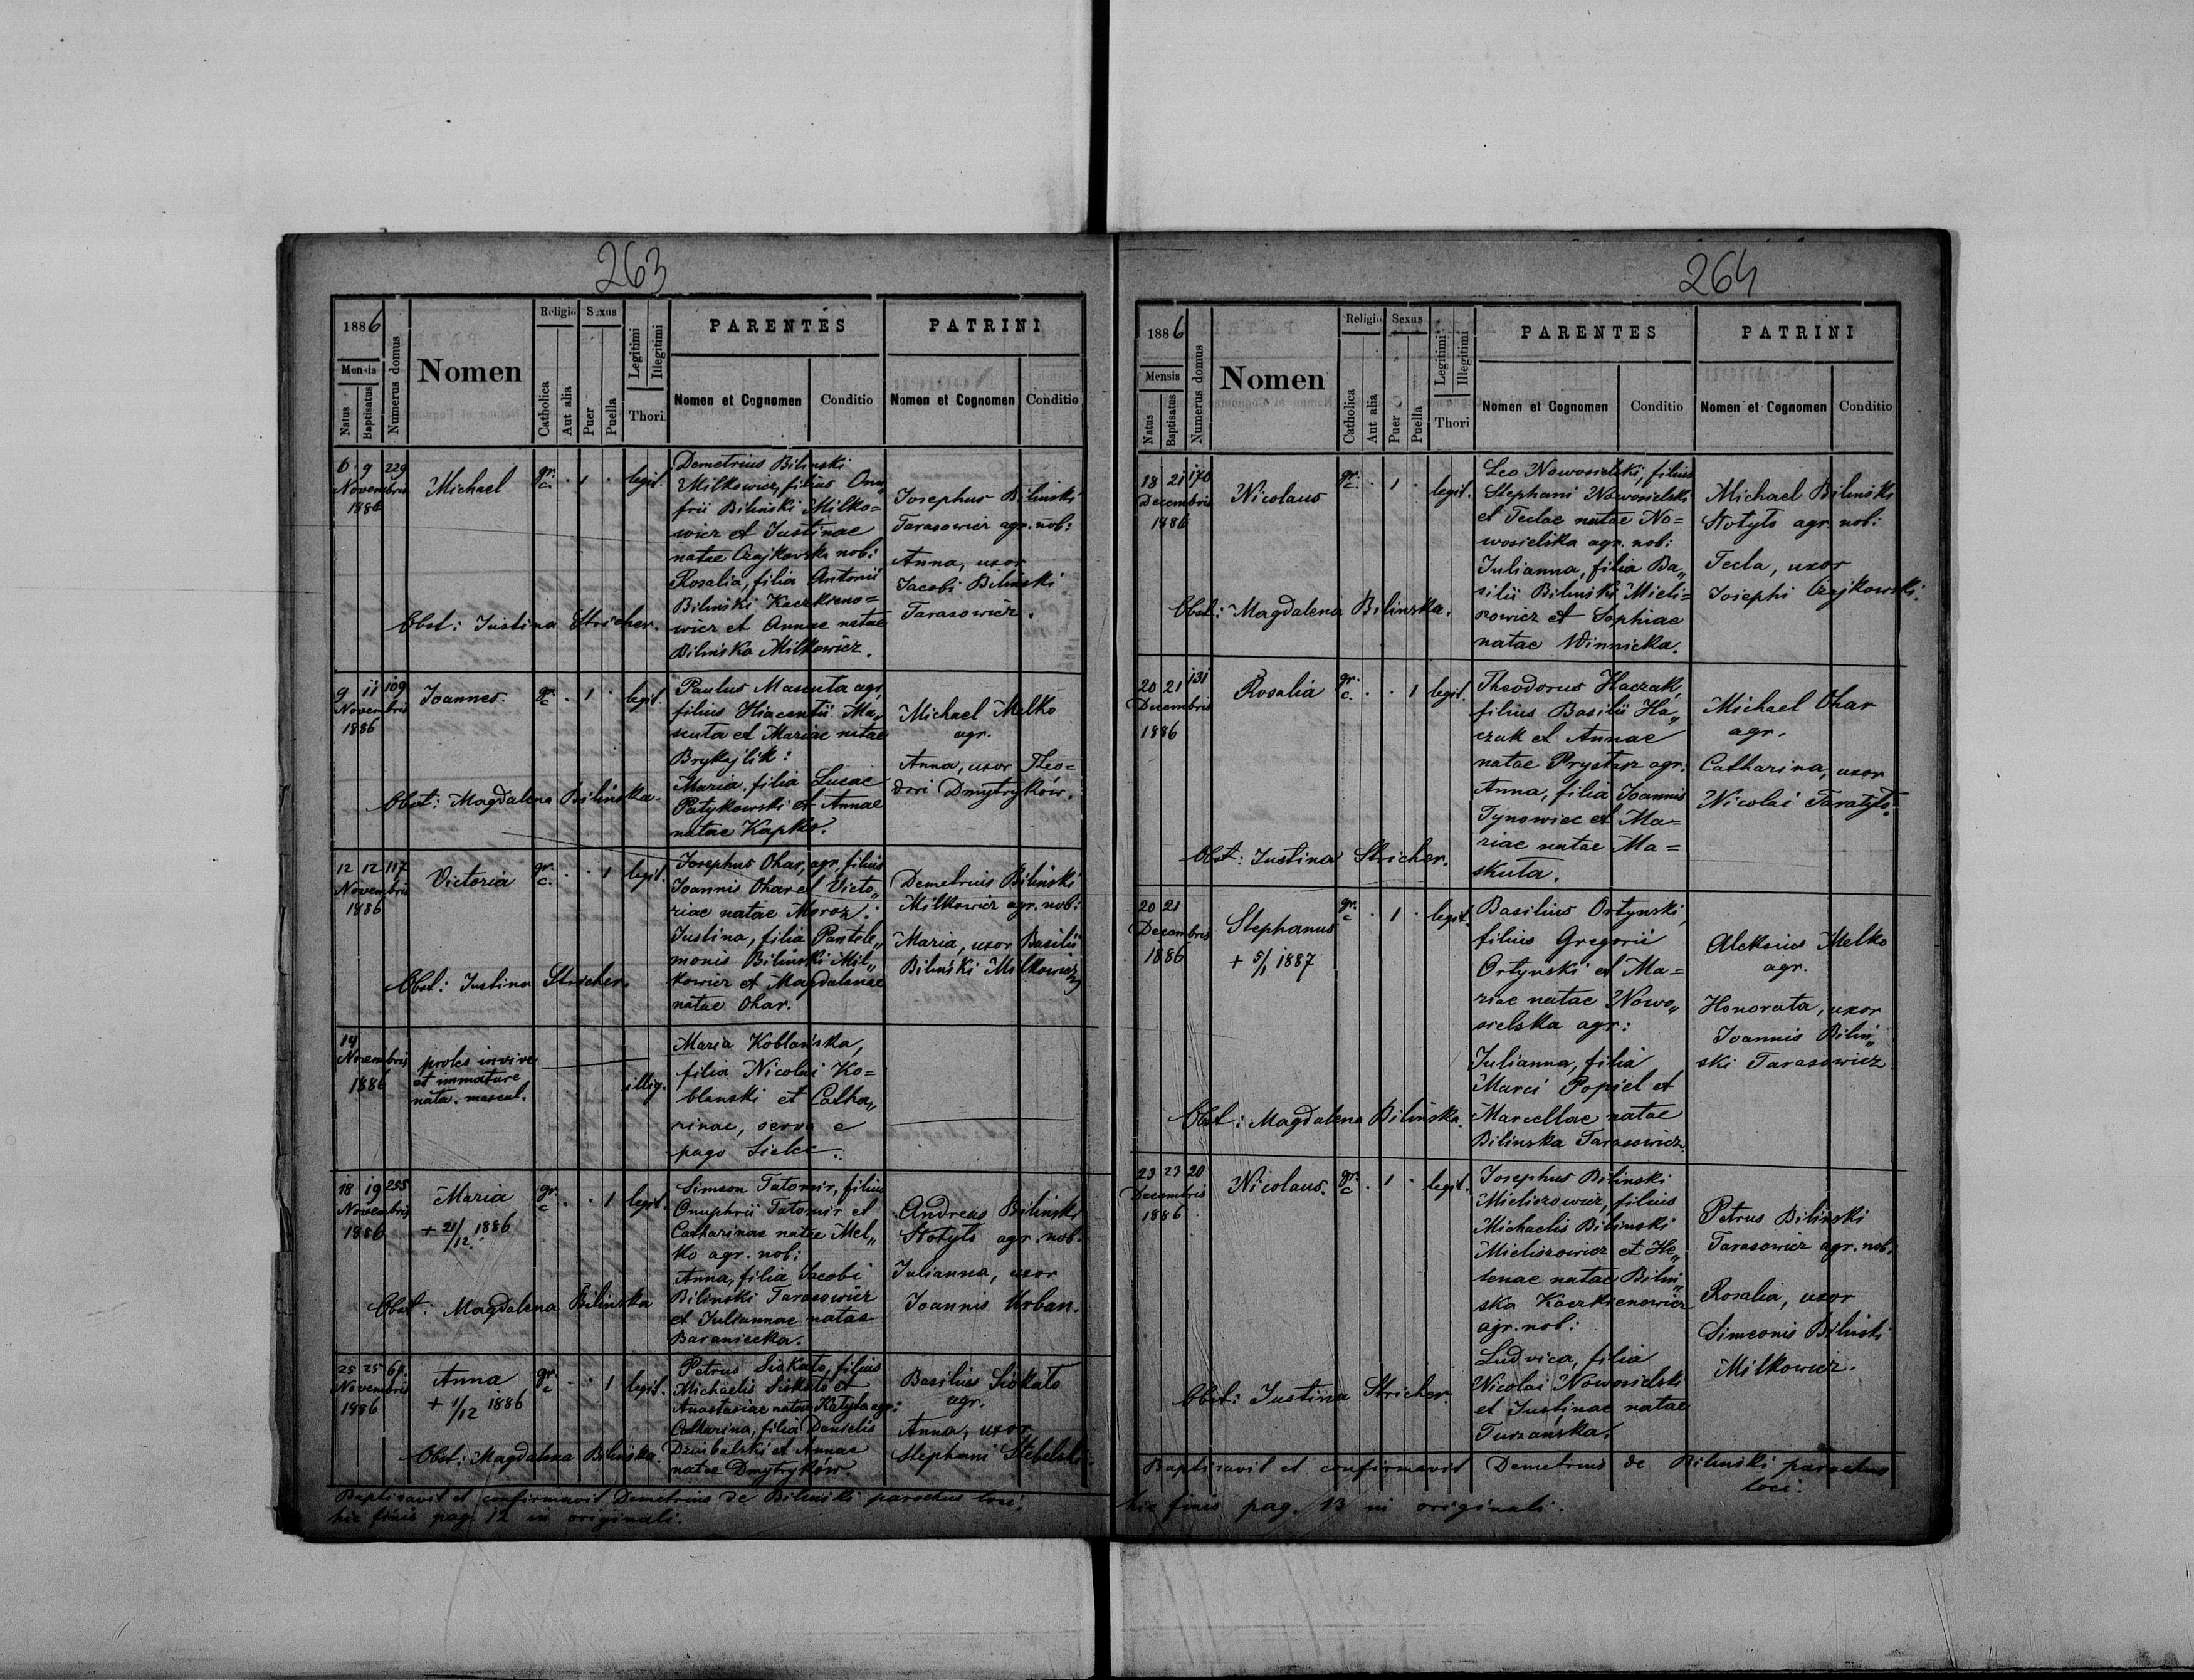 263
1886
Mensis
Natus
Baptisatus
Numerus domus
Nomen
Religio
Catholica
Aut alia
Sexus
Puer
Puella
Legitimi
Illegitimi
Thori
PARENTES
Nomen et Cognomen
Conditio
PATRINI
Nomen et Cognomen
Conditio
6 9 229
Novembris
1886
Michael
gr. c. · 1 · legit.
Demetrius Bilinski
Milkowicz, filius Onu„
frii Biliński Milko=
wicz et Justinae
natae Czajkowska nob:
Rosalia, filia Antonii
Biliński Kaczkieno=
wicz et Annae natae
Bilińska Milkowicz.
Josephus Biliński
Tarasowicz agr. nob:
Anna, uxor
Jacobi Biliński
Tarasowicz.
Obst: Justina Stricher.
9 11 109
Novembris
1886
Joannes.
gr. c · 1 · legit.
Paulus Mascuta agr,
filius Hiacentii Ma„
scuta et Mariae natae
Brykajlik:
Maria, filia Lucae
Patykowski et Annae
natae Kapko.
Michael Melko
agr.
Anna, uxor Theo=
dori Dmytryków.
Obst: Magdalena Bilińska.
12 12 117
Novembris
1886
Victoria
gr. c. · · 1 legit.
Josephus Ohar, agr, filius
Joannis Ohar et Victo„
riae natae Moroz:
Justina, filia Pantele„
monis Biliński Mil„
kowicz et Magdalenae
natae Ohar.
Demetrius Biliński
Milkowicz agr. nob:
Maria, uxor Basilii
Biliński Milkowicz
Obst: Justina Stricher.
14
Novembris
1886
proles invive
et immature
nata. mascul.
illig.
Maria Koblańska,
filia Nicolai Ko=
blanski et Catha„
rinae, serva e
pago Sielec.
18 19 255
Novembris
1886
Maria
+ 21/12. 1886
gr. c · · 1 legit.
Simeon Tatomir, filius
Onuphrii Tatomir et
Catharinae natae Mel„
ko agr. nob:
Anna, filia Jacobi
Bilinski Tarasowicz
et Juliannae natae
Baraniecka.
Andreas Bilinski
Stotyło agr. nob.
Julianna, uxor
Joannis Urban.
Obst: Magdalena Bilinska
25 25 67
Novembris
1886
Anna
+ 1/12 1886
gr. c · · 1 legit.
Petrus Siokało, filius
Michaelis Siokało et
Anastasiae natae Katyda agr:
Catharina, filia Danielis
Dzimbalski et Annae
natae Dmytryków.
Basilius Siokało
agr.
Anna, uxor
Stephani Stebelski.
Obst: Magdalena Bilińska.
Baptisavit et confirmavit Demetrius de Biliński parochus loci.
hic finis pag. 12 in originali.
264
1886
Mensis
Natus
Baptisatus
Numerus domus
Nomen
Religio
Catholica
Aut alia
Sexus
Puer
Puella
Legitimi
Illegitimi
Thori
PARENTES
Nomen et Cognomen
Conditio
PATRINI
Nomen et Cognomen
Conditio
18 21 170
Decembris
1886
Nicolaus
gr. c. · 1 · legit.
Leo Nowosielski, filius
Stephani Nowosielski
et Teclae natae No=
wosielska agr. nob:
Julianna, filia Ba„
silii Biliński Mieli=
szowicz et Sophiae
natae Winnicka.
Michael Biliński
Stotyło agr. nob:
Tecla, uxor
Josephi Czajkowski.
Obst: Magdalena Bilinska.
20 21 131
Decembris
1886
Rosalia
gr. c. · · 1 legit.
Theodorus Haczak,
filius Basilii Ha„
czak et Annae
natae Prystasz agr:
Anna, filia Joannis
Tynowiec et Ma=
riae natae Ma=
skuta.
Michael Ohar
agr.
Catharina, uxor
Nicolai Taratyło.
Obst: Justina Stricher.
20 21
Decembris
1886
Stephanus
+ 5/1 1887
gr. c · 1 · legit.
Basilius Ortynski,
filius Gregorii
Ortynski et Ma=
riae natae Nowo„
sielska agr:
Julianna, filia
Marci Popiel et
Marcellae natae
Bilinska Tarasowicz.
Aleksius Melko
agr.
Honorata, uxor
Joannis Biliń„
ski Tarasowicz
Obst: Magdalena Bilińska.
23 23 20
Decembris
1886
Nicolaus.
gr. c · 1 · legit.
Josephus Bilinski
Mieliszowicz, filius
Michaelis Bilinski
Mieliszowicz et He„
lenae natae Biliń„
ska Kaczkienowicz
agr. nob:
Ludvica, filia
Nicolai Nowosielski
et Justinae natae
Turzańska.
Petrus Bilinski
Tarasowicz agr. nob:
Rosalia, uxor
Simeonis Biliński
Milkowicz.
Obst: Justina Stricher.
Baptisavit et confirmavit Demetrius de Biliński parochus
loci.
hic finis pag. 13 in originali.